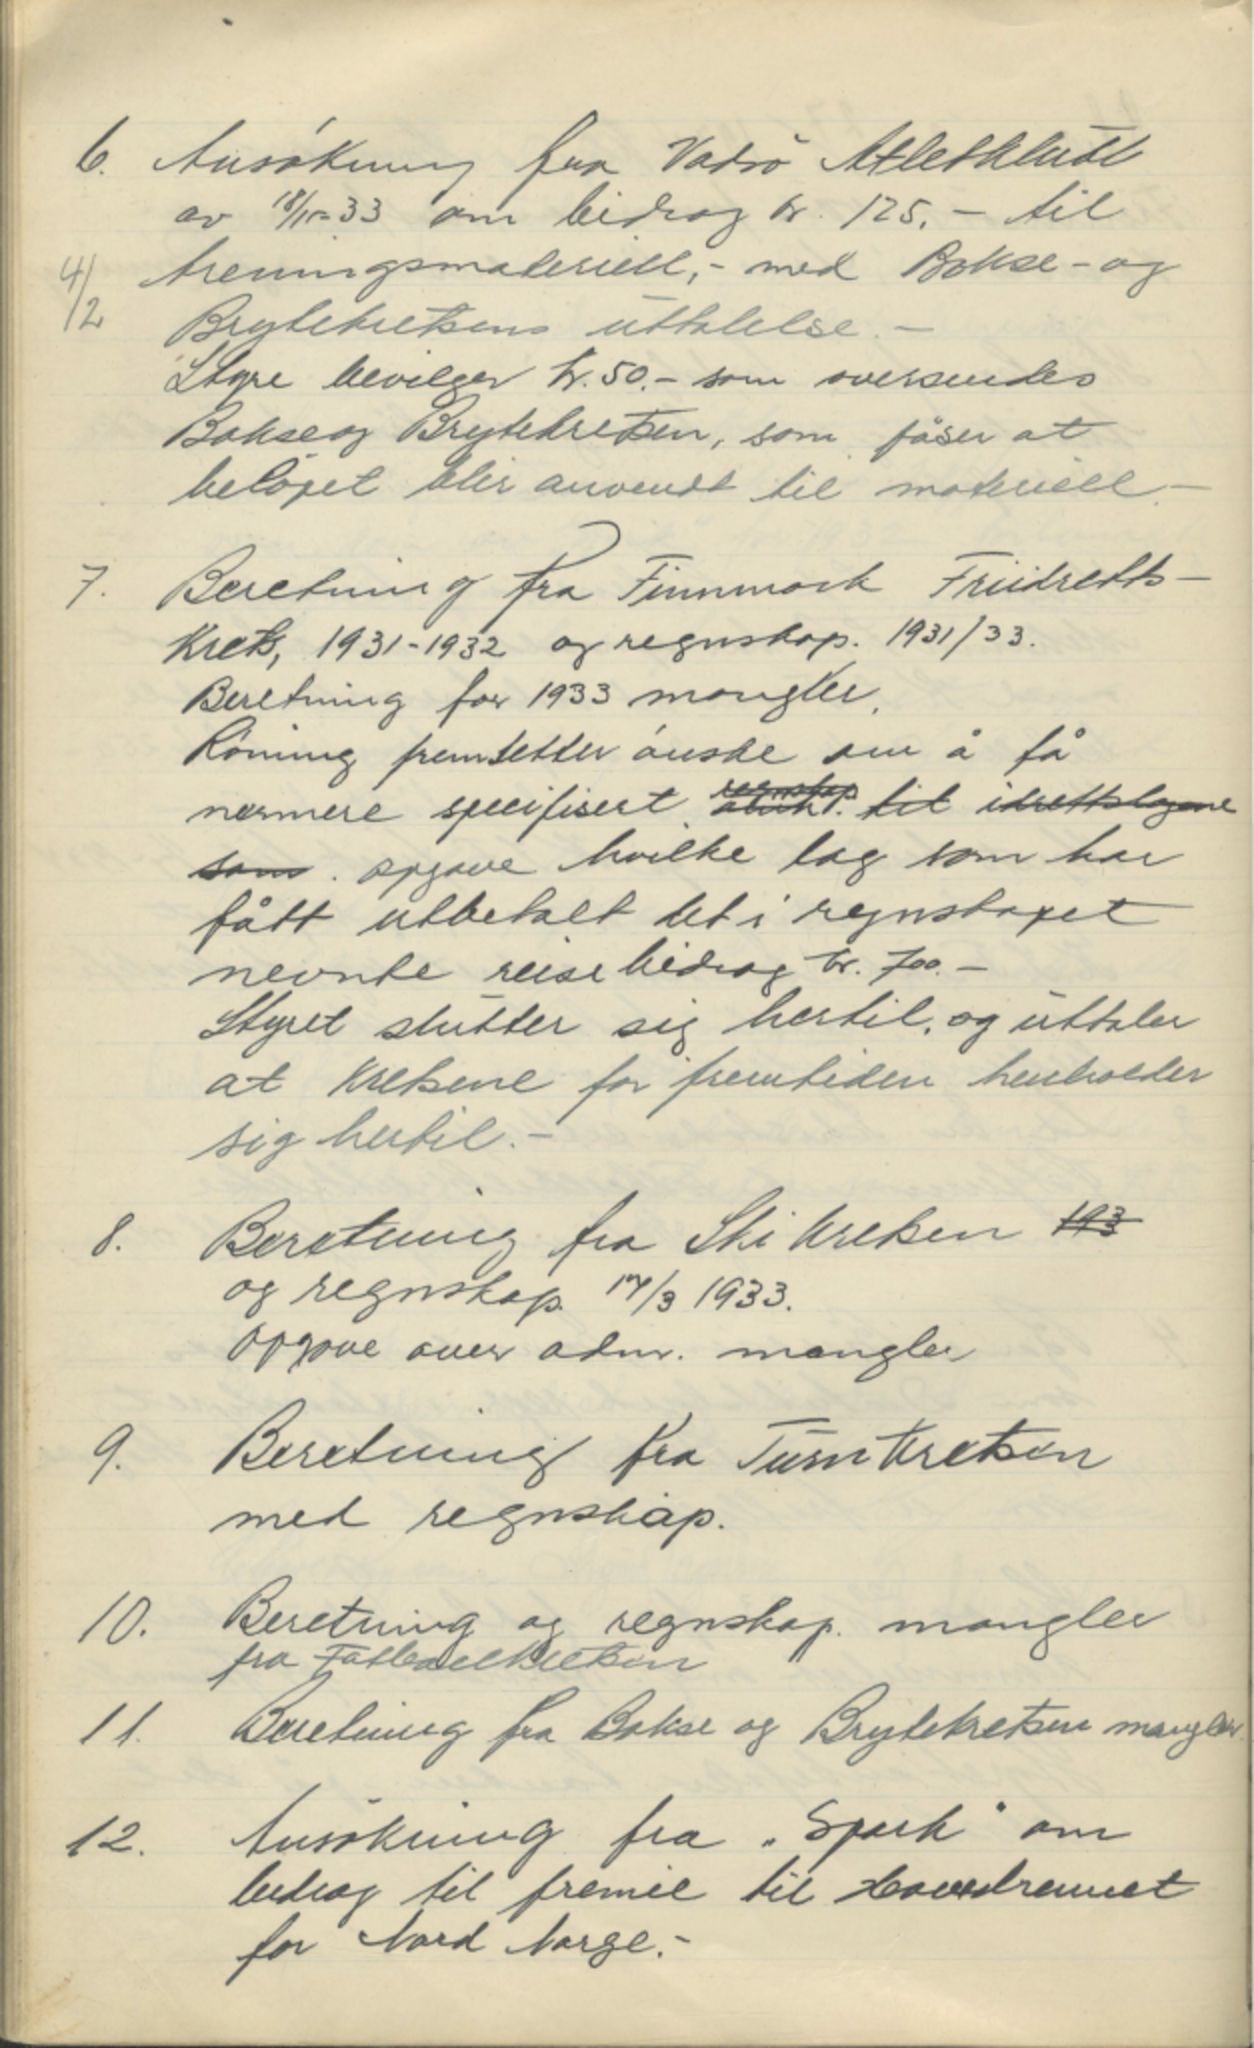 6. Ansökning fra Vadsö Atletklubb
av 18/10-33 om bidrag kr. 125,- til
4/2 treningsmateriell,- med Bokse- og
Brytekretsens uttalelse.-
Styre bevilger kr. 50.- som oversendes
Bokse og Brytekretsen, som påser at
belöpet blir anvendt til materiell.-
7. Beretning fra Finnmark Friidretts-
Krets, 1931-1932 og regnskap. 1931/33.
Beretning for 1933 mangler.
Röning fremsetter önske om å få
nærmere specifisert regnskap til idrettslagene
som. opgave hvilke lag som har
fått utbetalt det i regnskapet
nevnte reisebidrag kr. 700.-
Styret slutter sig hertil, og uttaler
at Kretsene for fremtiden henholder
sig hertil.-
8. Beretning fra Ski Kretsen 193
og regnskap 17/3 1933.
Opgave over adm. mangler
9. Beretning fra Turn Kretsen
med regnskap.
10. Beretning og regnskap. mangler
fra Fotballkretsen
11. Beretning fra Bokse og Brytekretsen mangler
12. Ansökning fra "Spark" om
bidrag til premie til Hovedrennet
for Nord Norge.-